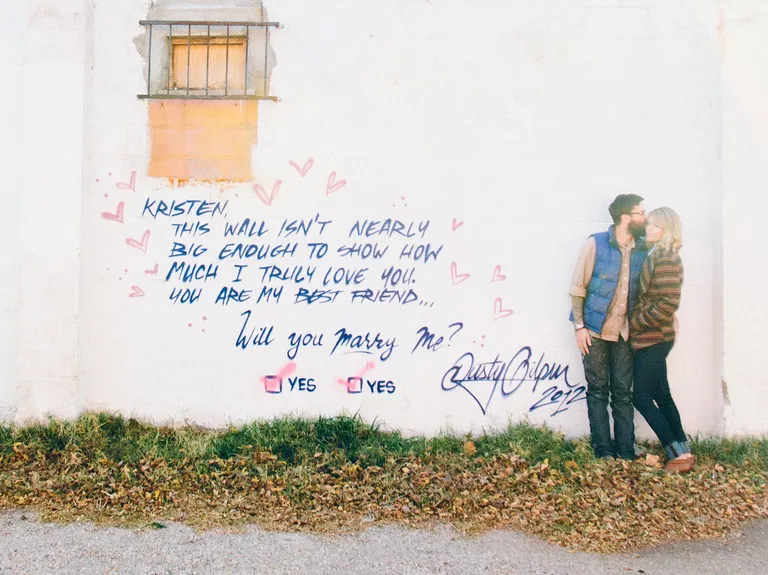 KRISTEN,
THIS WALL ISN'T NEARLY
BIG ENOUGH TO SHOW HOW
MUCH I TRULY LOVE YOU.
YOU ARE MY BEST FRIEND...
Will you marry Me?
YES YES
@DustyGilpin
2012